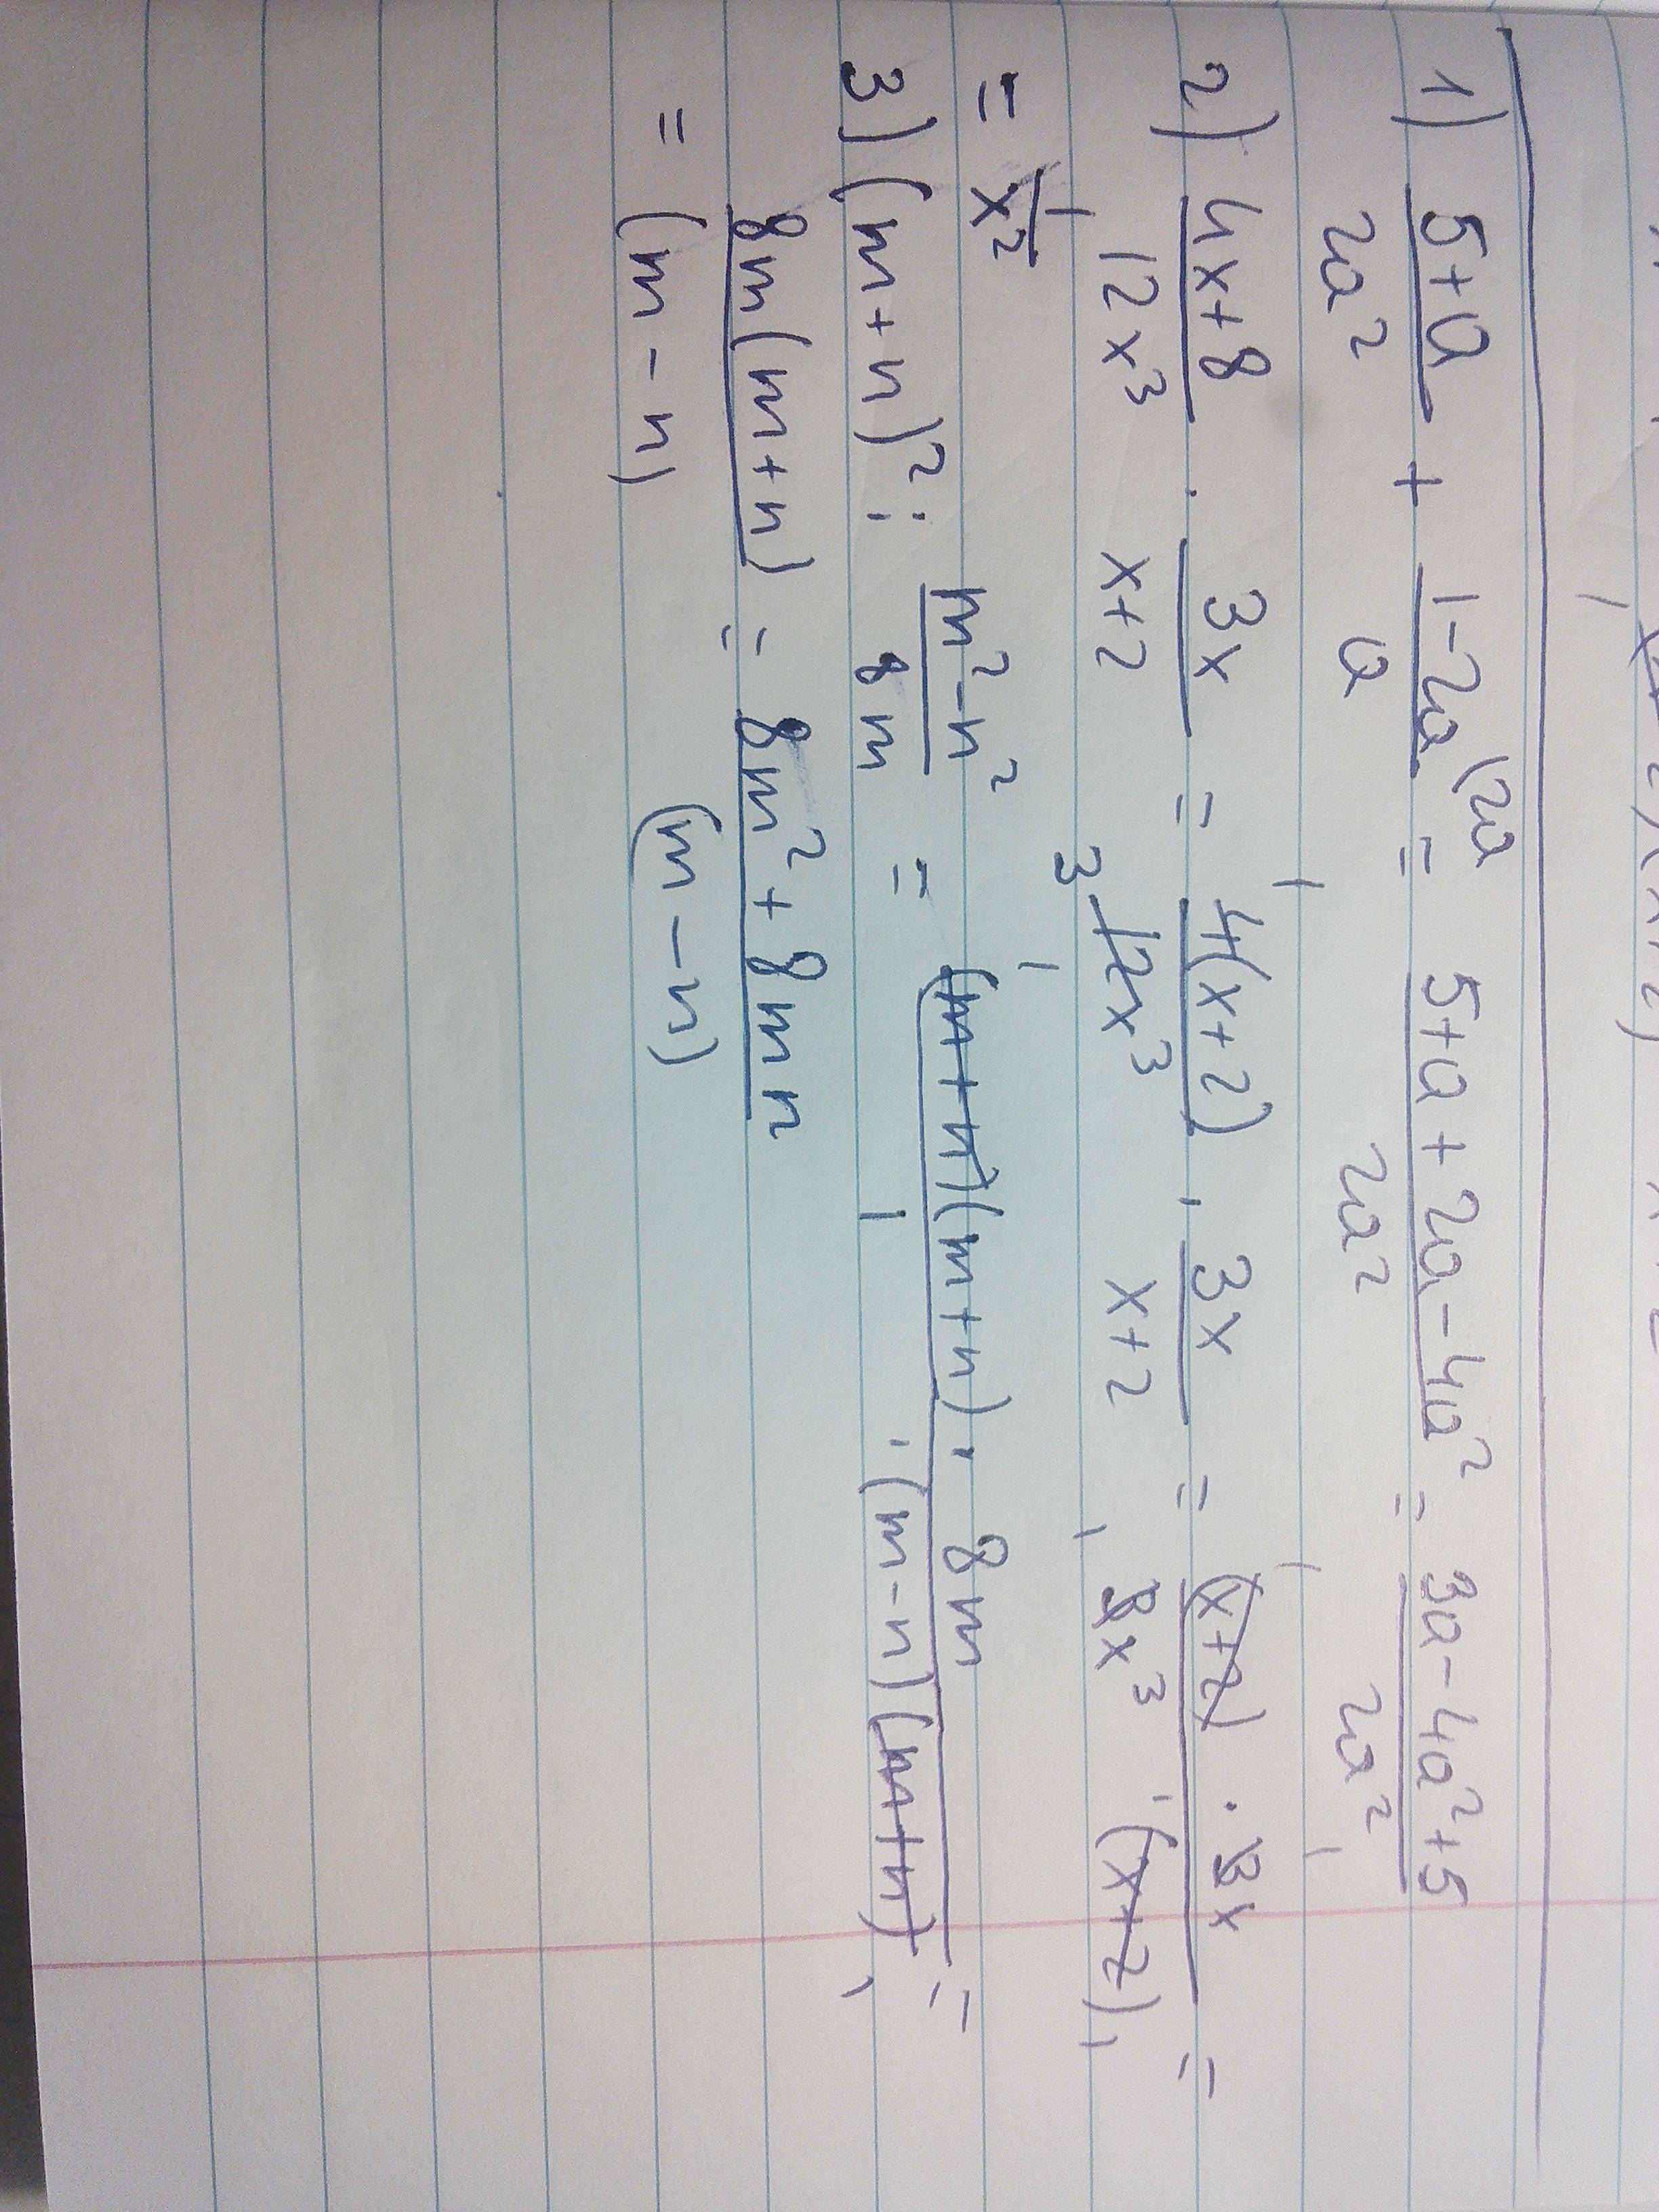 1) (5+a)/(2a²) + (1-2a)/a (2a = (5+a+2a-4a²)/(2a²) = (3a-4a²+5)/(2a²)
2) (4x+8)/(12x³) · (3x)/(x+2) = (4(x+2))/(12x³) 3 · (3x)/(x+2) = ((x+2) · 3x)/(3x³ (x+2)) =
= 1/x²
3) (m+n)² : (m²-n²)/(8m) = ((m+n)(m+n) · 8m)/((m-n)(m+n)) =
= (8m(m+n))/((m-n)) = (8m²+8mn)/((m-n))